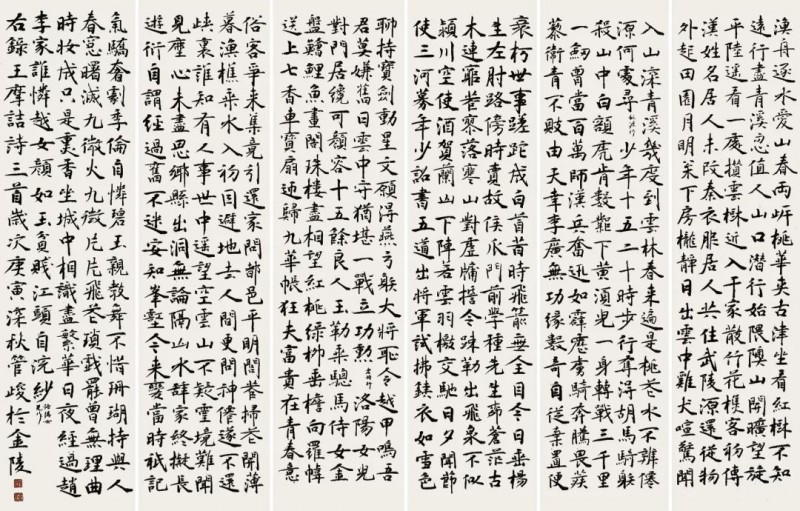 漁舟逐水愛山春兩岸桃華夾古津坐看紅樹不知
遠行盡青溪忽值人山口潛行始隈隩山開曠望旋
平陸遙看一處攢雲樹近入千家散行花樵客初傳
漢姓名居人未改秦衣服居人共住武陵源還從物
外起田園月明松下房櫳靜日出雲中雞犬喧驚聞
入山深青溪幾度到雲林春來遍是桃花水不辨僊
源何處尋桃源行少年十五二十時步行奪得胡馬騎射
殺山中白額虎肯數鄴下黃須兒一身轉戰三千里
一劍曾當百萬師漢兵奮迅如霹靂虜騎奔騰畏蒺
藜衛青不敗由天幸李廣無功緣數奇自從棄置便
衰朽世事蹉跎成白首昔時飛箭無全目今日垂楊
生左肘路傍時賣故侯瓜門前學種先生柳蒼茫古
木連窮巷寥落寒山對虛牖誓令疎勒出飛泉不似
潁川空使酒賀蘭山下陣若雲羽檄交馳日夕聞節
使三河募年少詔書五道出將軍試拂鐵衣如雪色
聊持寶劍動星文願得燕弓射大將恥令越甲鳴吾
君莫嫌舊日雲中守猶堪一戰立功勳老將行洛陽女兒
對門居纔可顏容十五餘良人玉勒乘驄馬侍女金
盤鱠鯉魚畫閣珠樓盡相望紅桃綠柳垂檐向羅幃
送上七香車寶扇迎歸九華帳狂夫富貴在青春意
俗客爭來集競引還家問都邑平明閭巷掃花開薄
暮漁樵乘水入初因避地去人間更問神僊遂不還
峽裏誰知有人事世中遙望空雲山不疑靈境難聞
見塵心未盡思鄉縣出洞無論隔山水辭家終擬長
遊衍自謂經過舊不迷安知峯壑今來變當時祇記
氣驕奢劇季倫自憐碧玉親教舞不惜珊瑚持與人
春窗曙滅九微火九微片片飛花瑣戲罷曾無理曲
時妝成只是熏香坐城中相識盡繁華日夜經過趙
李家誰憐越女顏如玉貧賤江頭自浣紗洛陽女兒行
右錄王摩詰詩三首歲次庚寅深秋管峻於金陵